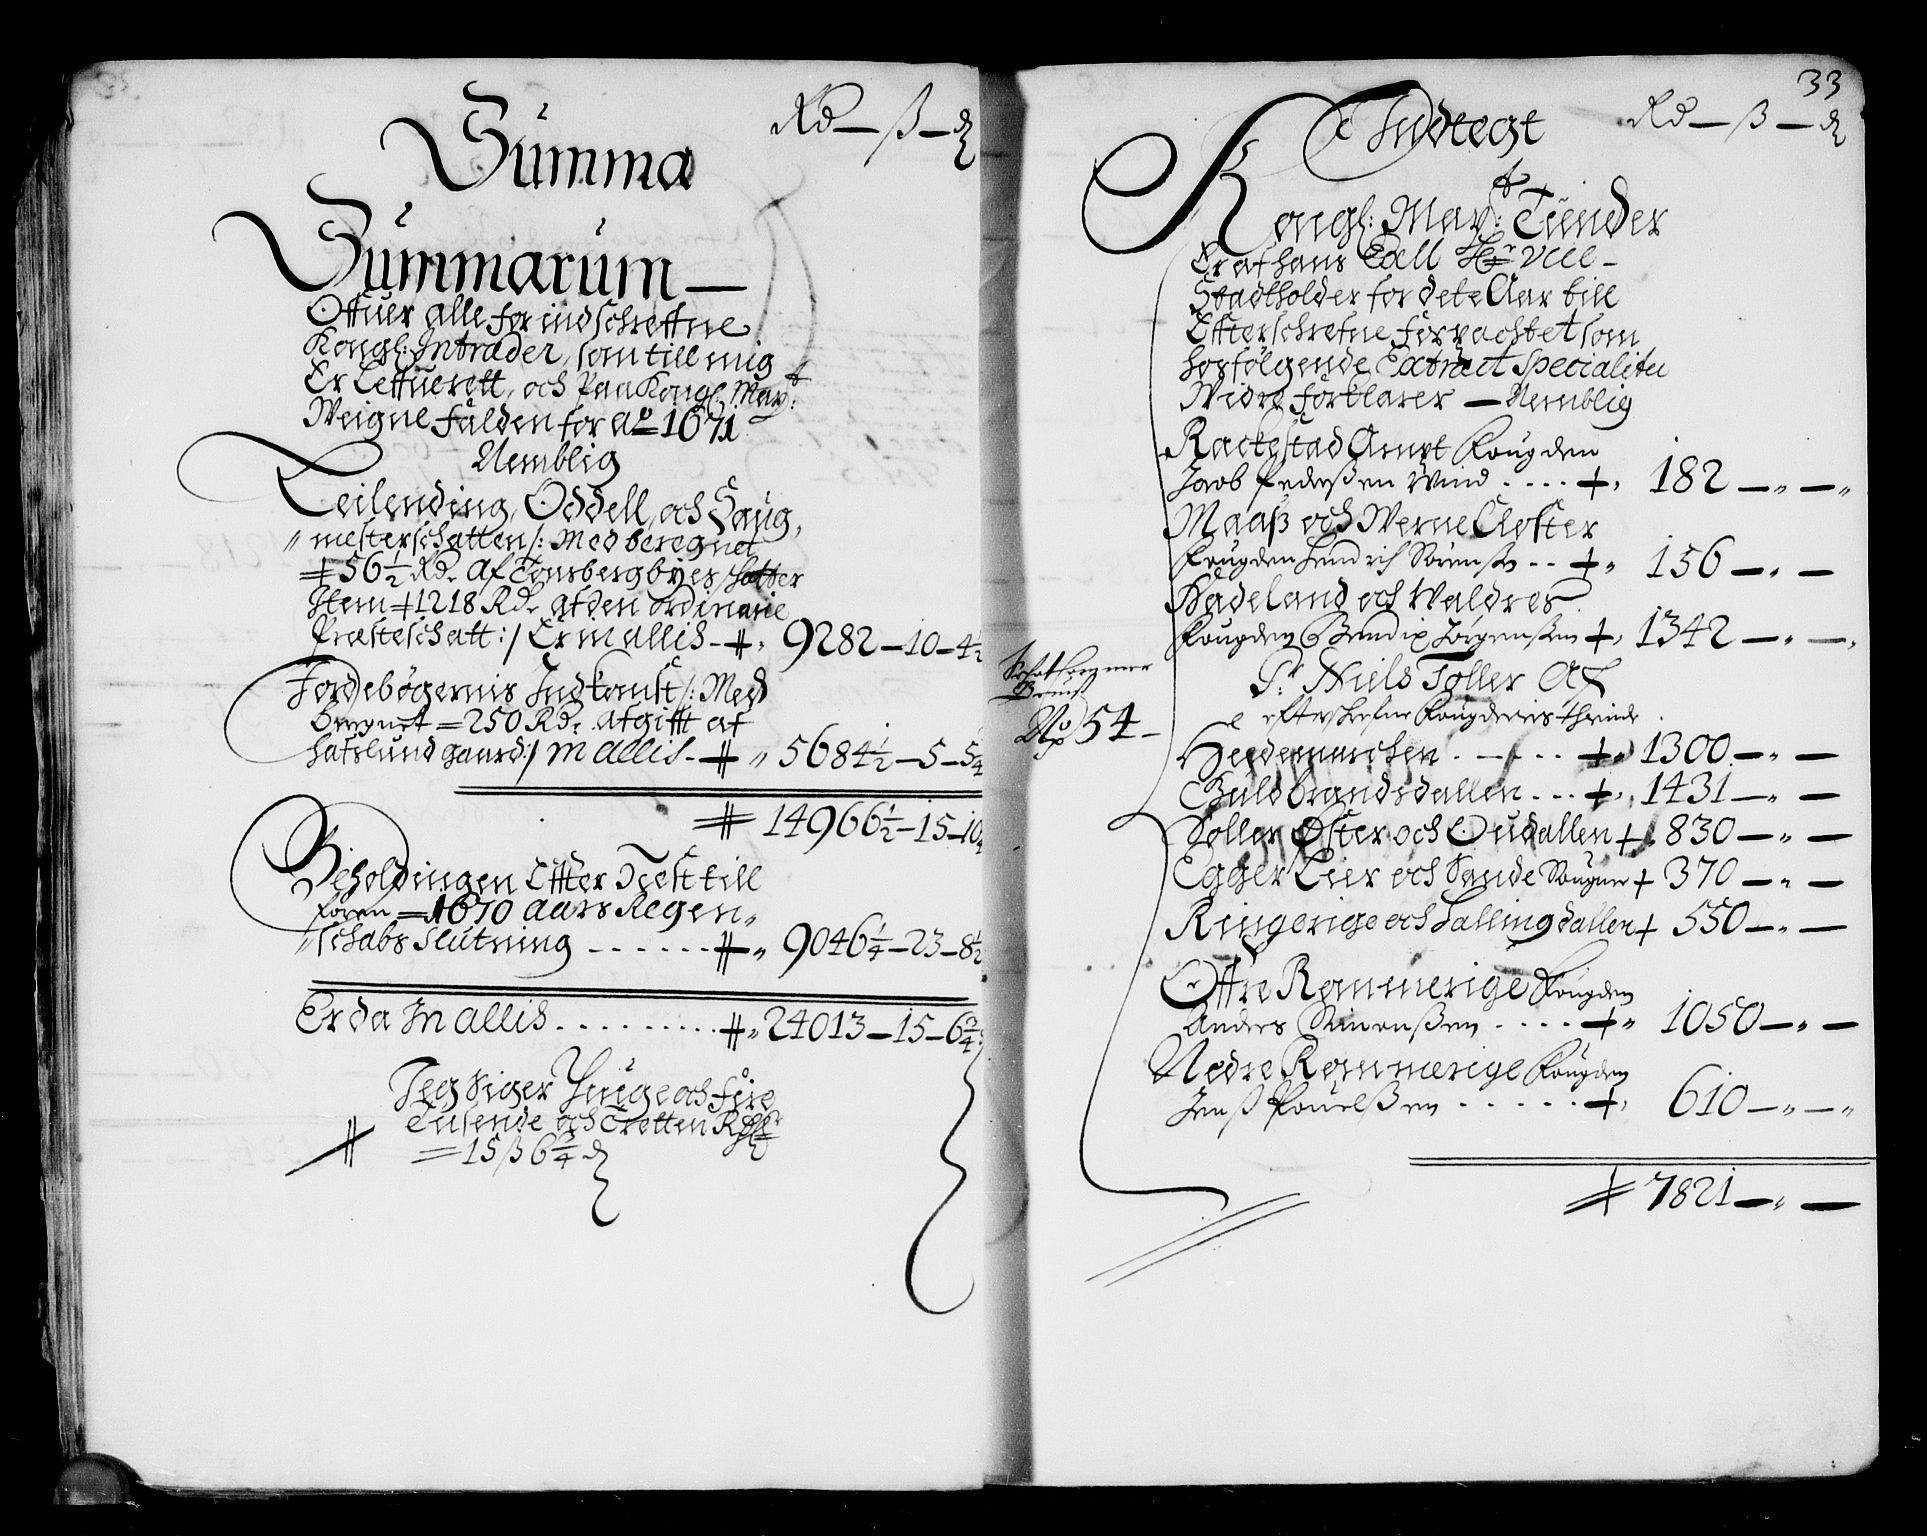 Rd — ß — d
Summa
Summarum —
Offuer alle forindschreffne
Kongl: Intrader, som till mig
Er Leffuerett, och Paa Kongl: Mayt:
Weigne falden for Ao 1671
Nemblig
Leilending, Oddell, och Haug,
" mesterschatten /: Med beregnet
56½ Rd. Af Tonsberg byes schatter
Item 1218 Rd. af den ordinarie
Præsteschatt :/ Er in allis - 9282 — 10 — 4½
Jordebøgernis Indkomst /: Med
beregnet = 250 Rd. Afgifft af
Hafslund gaard :/ In allis - " 5684½ — 5 — 5¼
14966½ — 15 — 10
Beholdingen Effter Nest till
foren = 1670 Aars Regen,
" schabs Slutning . . . . . . " 9046¼ — 23 — 8½
Er da In allis . . . . . . . . . " 24013 — 15 — 6¾
Jeg Siger Tiuge och fire
Tusende och Tretten Rdlr
= 15 ß 6¾ d
33
Indtegt
Rd — ß — d
Kongl: Mayt: Tiender
Er af hans Excell Hr Vice -
Stadtholder for dete Aar till
Effterschrefne forpachtet som
hosfølgende Extract Specialiter
Widre forklarer — Nemblig
Rackestad Ampt fougden
Jacob Pedersen Wind . . . . 182 — " — "
Maaß och Werne Closter
fougden Hendrich Sørensen . . 156 — " —
Hadeland och Waldres
fougden Bendix Jørgensen 1342 — " — "
Sr. Niels Toller Af
efterschrefne fougderiis thiende
No 54 —
Heedemarchen . . . . . . " 1300 — " —
Guldbrandsdallen . . . 1431 — " —
Soller Øster och Oudallen 830 — " —
Egger Lier och Sande Sougner 370 — " —
Ringerige och Hallingdallen 550 — " —
Offre Rommerige fougden
Anders Simonßen . . . . " 1050 — " —
Nedre Rommerige fougden
Jenß Pouelßen . . . . . 610 — " — "
7821 — " —